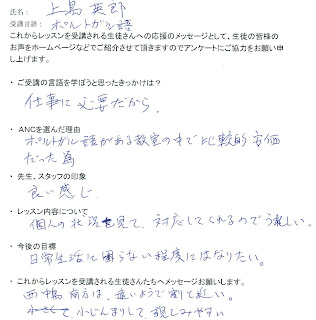 氏名： 上嶌 英郎
受講言語： ポルトガル語
これからレッスンを受講される生徒さんへの応援のメッセージとして、生徒の皆様の
お声をホームページなどでご紹介させて頂きますのでアンケートにご協力をお願い申
し上げます。
・ご受講の言語を学ぼうと思ったきっかけは？
仕事に必要だから．
・ANCを選んだ理由
ポルトガル語がある教室の中で比較的安価
だった為
・先生、スタッフの印象
良い感じ．
・レッスン内容について
個人の状況を見て、対応してくれるのでうれしい。
・今後の目標
日常生活に困らない程度にはなりたい。
・これからレッスンを受講される生徒さんたちへメッセージお願いします。
西中島南方は、遠いようで割と近い。
小じんまりして、親しみやすい